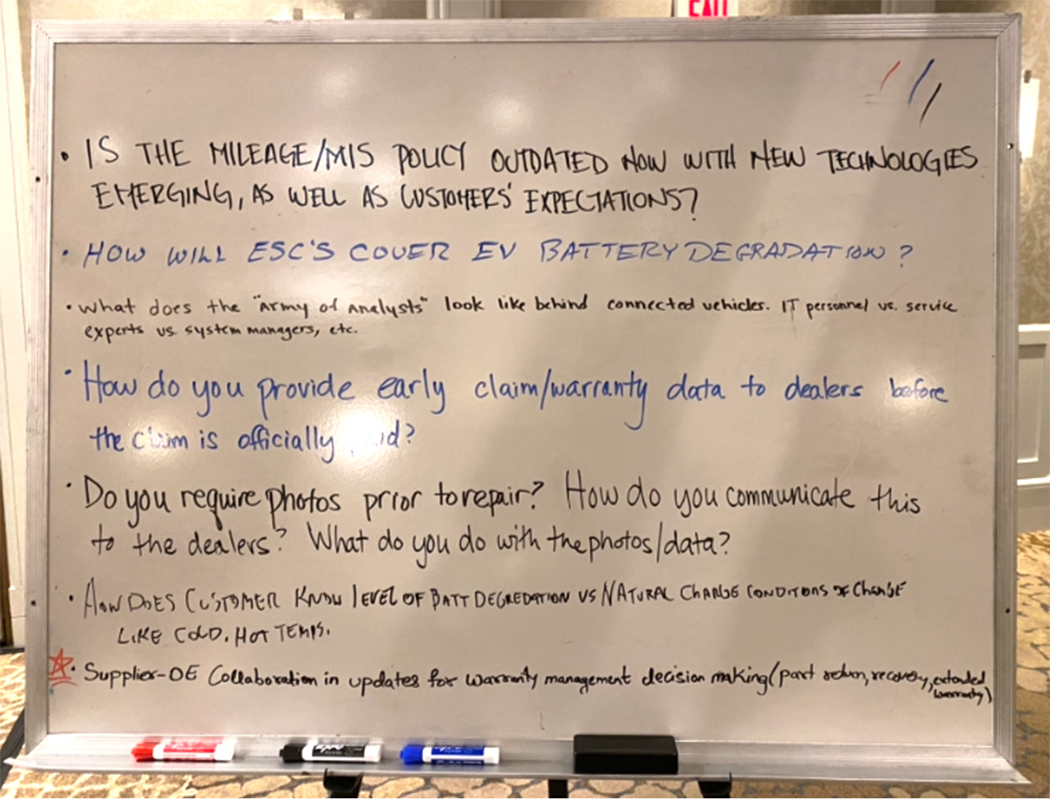 EXIT
• IS THE MILEAGE/MIS POLICY OUTDATED NOW WITH NEW TECHNOLOGIES
EMERGING, AS WELL AS CUSTOMERS' EXPECTATIONS?
• HOW WILL ESC'S COVER EV BATTERY DEGRADATION?
• What does the "army of analysts" look like behind connected vehicles. IT personnel vs. service
experts vs. system managers, etc.
• How do you provide early claim/warranty data to dealers before
the claim is officially
• Do you require photos prior to repair? How do you communicate this
to the dealers? What do you do with the photos/data?
• HOW DOES CUSTOMER KNOW LEVEL OF BATT DEGREDATION VS NATURAL CHANGE CONDITIONS OF CHANGE
LIKE COLD, HOT TEMPS.
• Supplier-OE Collaboration in updates for warranty management decision making (part return, recovery, extended
warranty)
EXPO